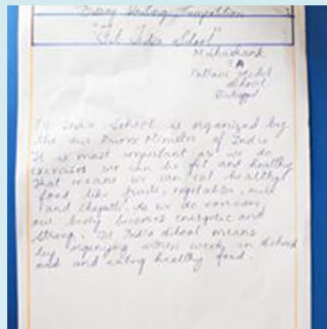 Essay Writing Competition
"Fit India School"
M. Shashank
3A
Pallavi Model
School
Fit India School is organized by
the our Prime Minister of India
It is most important as we do
exercises we can be fit and healthy
That means we can eat healthy
food like fruits, vegetables, nuts
and chapati. As we do exercises,
our body becomes energetic and
strong. Fit India School means
by organizing fitness week in School
and and eating healthy food.